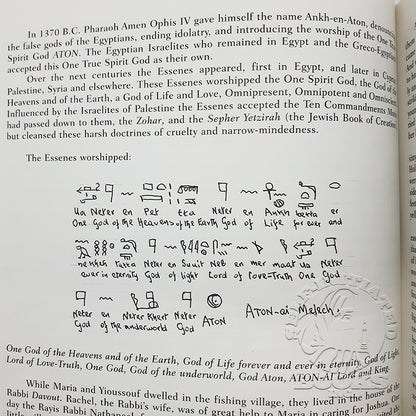 In 1370 B.C. Pharaoh Amen Ophis IV gave himself the name Ankh-en-Aton, denoun
the false gods of the Egyptians, ending idolatry, and introducing the worship of the One T
Spirit God ATON. The Egyptian Israelites who remained in Egypt and the Greco-Egypti
accepted this One True Spirit God as their own.
Over the next centuries the Essenes appeared, first in Egypt, and later in Cyp
Palestine, Syria and elsewhere. These Essenes worshipped the One Spirit God, the God of
Heavens and of the Earth, a God of Life and Love, Omnipresent, Omnipotent and Omniscien
Influenced by the Israelites of Palestine the Essenes accepted the Ten Commandments Mo
had passed down to them, the Zohar, and the Sepher Yetzirah (the Jewish Book of Creation
but cleansed these harsh doctrines of cruelty and narrow-mindedness.
The Essenes worshipped:
Ua Neter en Pet Neter en Ankh er
One God of the Heavens and of the Earth God of Life for ever and
neheh Neter en Neb en mer maat Ua Neter
ever in eternity God of light Lord of Love=Truth One God
Neter en Neter Khert Neter
God of the underworld God ATON
ATON-ai-Melech.
One God of the Heavens and of the Earth, God of Life forever and ever in eternity, God of Light,
Lord of Love-Truth, One God, God of the underworld, God Aton, ATON-AI Lord and King.
While Maria and Youssouf dwelled in the fishing village, they lived in the house of the
Rabbi Davout. Rachel, the Rabbi's wife, was of great help to Maria in caring for
day the Rayis Rabbi